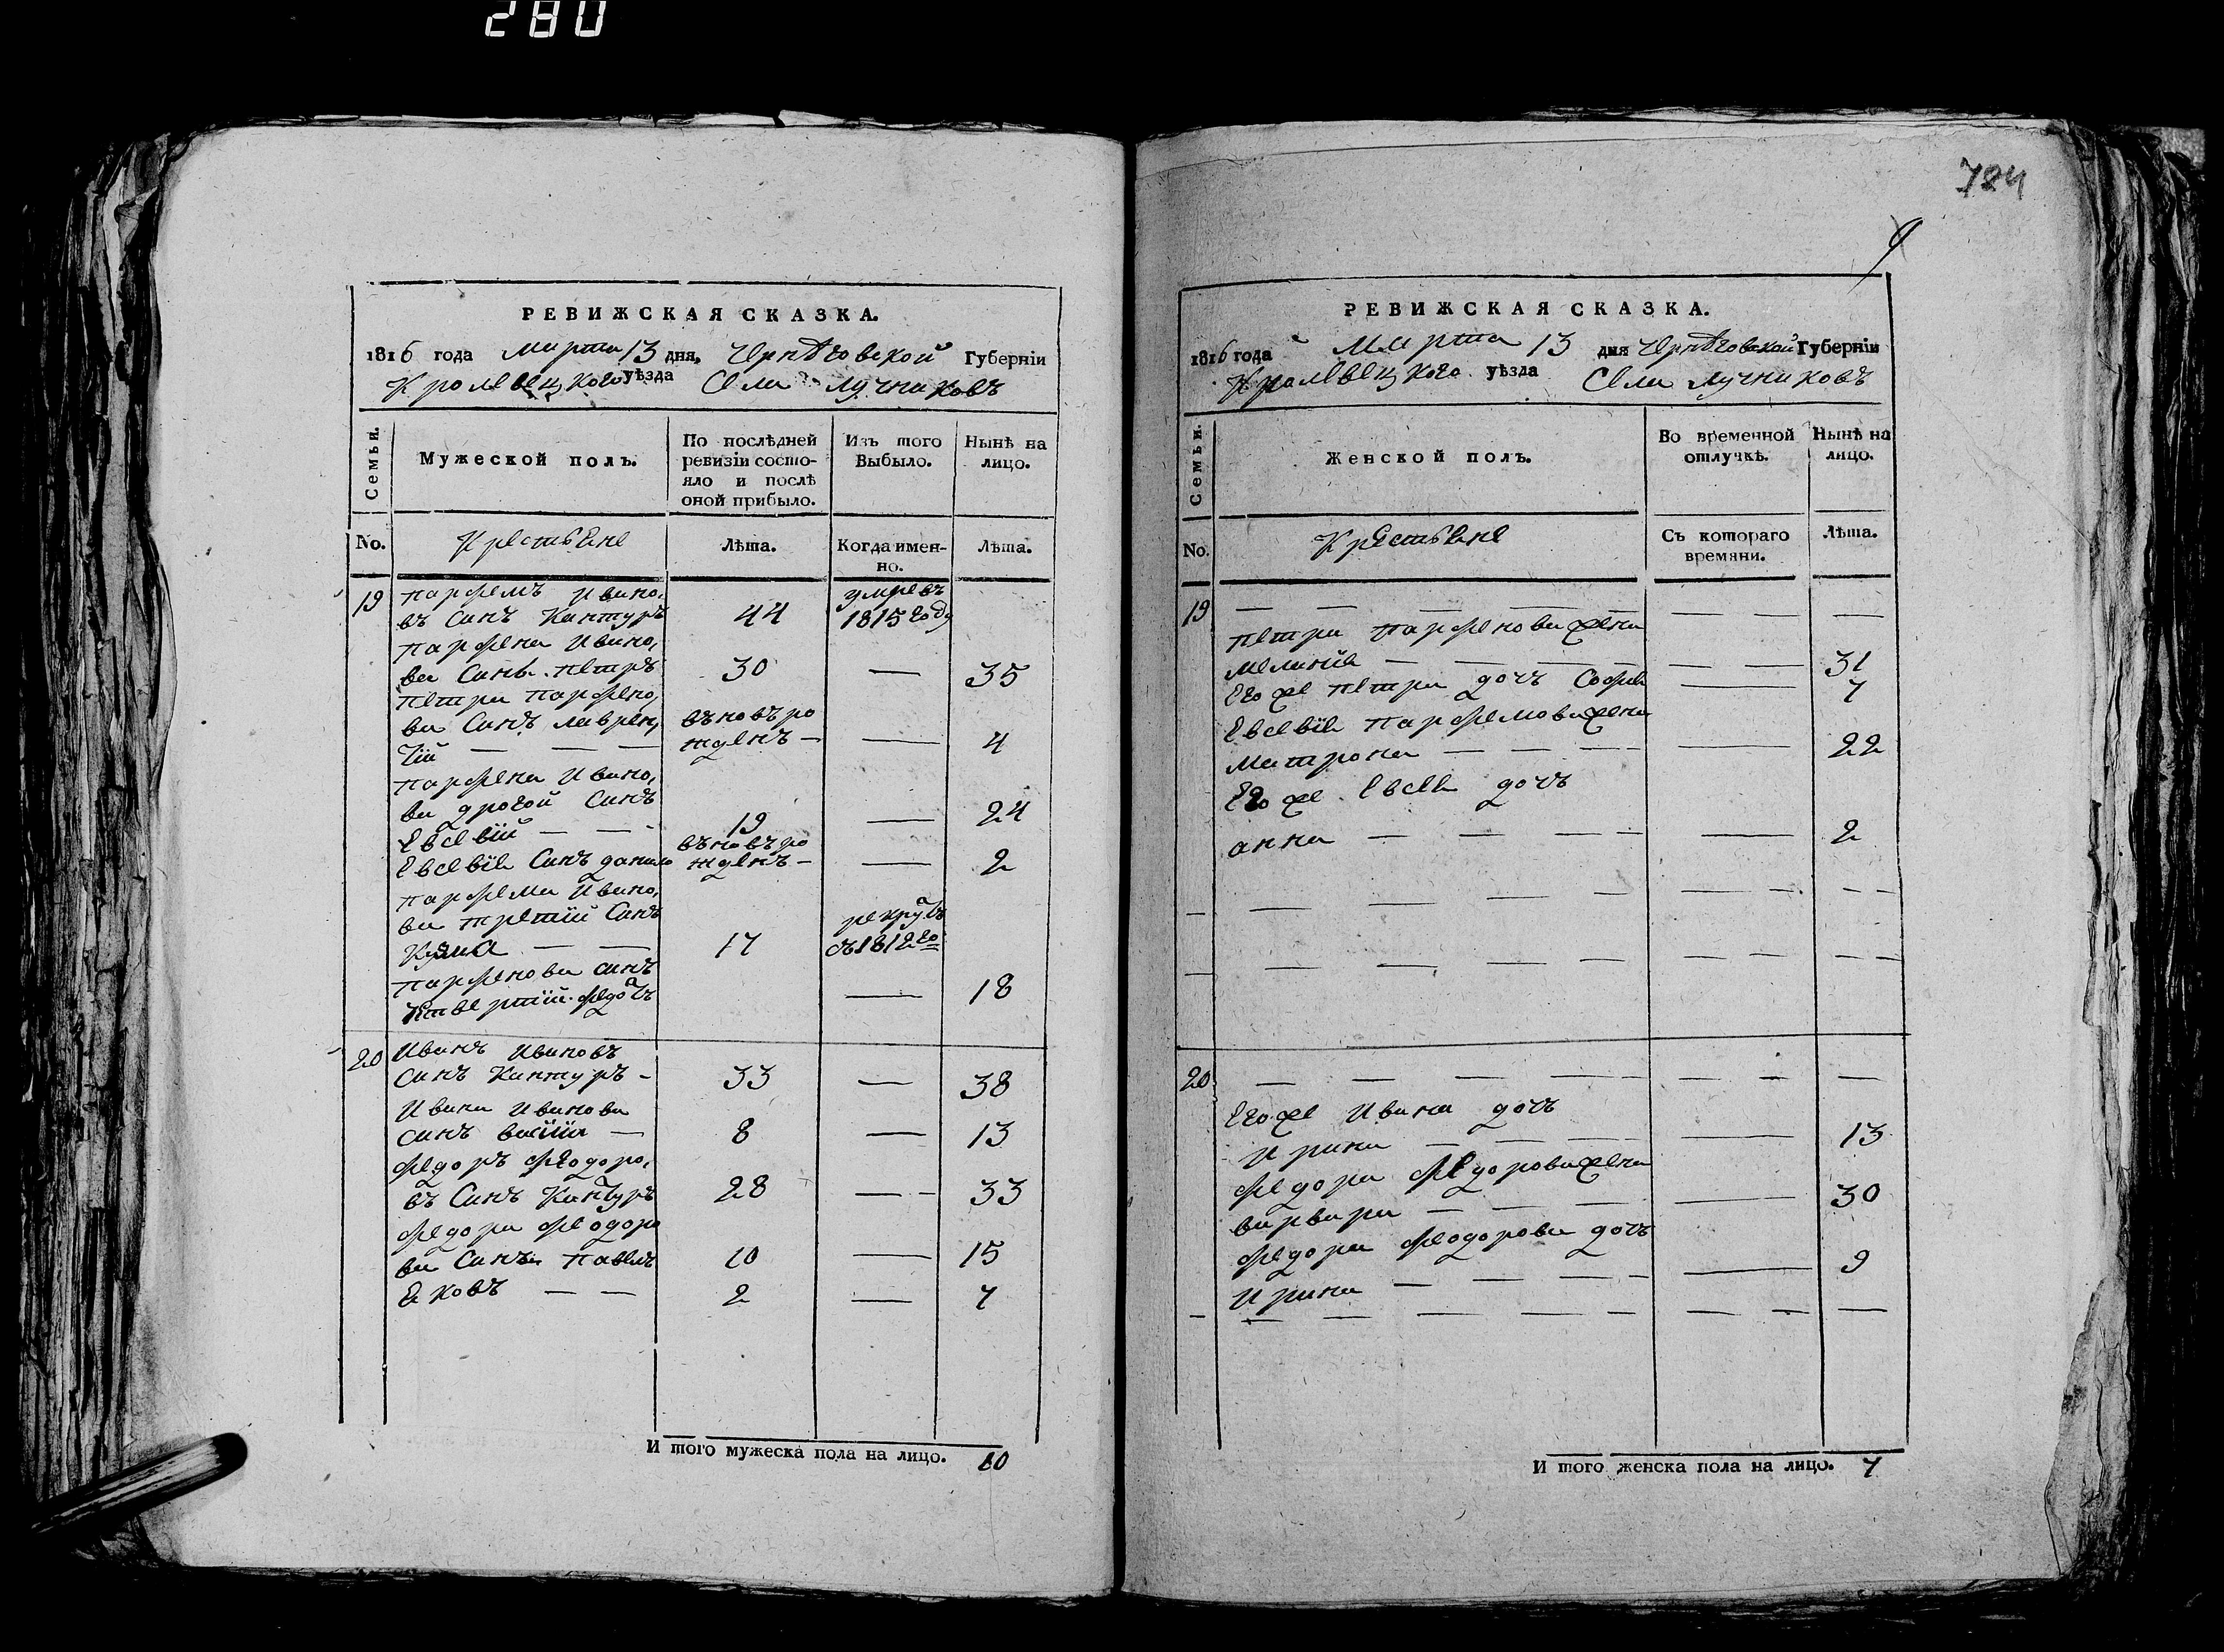 280
РЕВИЖСКАЯ СКАЗКА.
1816 года марта 13 дня, Чернѣговской Губерніи
Кролевецкого уѣзда Села Лучниковъ
Семьи.
Мужеской полъ.
По послѣдней ревизіи состо-
яло и послѣ
оной прибыло.
Изъ того
Выбыло.
Нынѣ на
лицо.
No.
Крестьяне
Лѣта.
Когда имен-
но.
Лѣта.
19 парфемъ ивано,
въ Синъ Кантуръ 44 умре въ 1815 году
парфена ивано,
ва Синъ петръ 30 — 35
петра парфено,
ва Синъ лаврен,
тій — — — въновъ ро
жденъ — — 4
парфена ивано,
ва другой Синъ
Евсевій — — 19 — 24
Евсевія Синъ данило въновъ ро
жденъ — — 2
парфема ивано,
ва третій Синъ
Кузма — — 17 рекрутъ
съ 1812 го
парфенова синъ
четвертій федотъ — 18
20 Иванъ ивановъ
синъ Кантуръ — 33 — 38
Ивана иванова
синъ — 8 — 13
федоръ феодоро,
въ Синъ Кантуръ 28 — — 33
федора феодоро
ва Синъ павелъ 10 — 15
Яковъ — — 2 — 7
И того мужеска пола на лицо. 10
784
9
РЕВИЖСКАЯ СКАЗКА.
1816 года марта 13 дня Чернѣговской Губерніи
Кролевецкого уѣзда Села Лучниковъ
Семьи.
Женской полъ.
Во временной
отлучкѣ.
Нынѣ на
лицо.
No.
Крестьяне
Съ котораго
времяни.
Лѣта.
19 — — — — — — — —
петра парфенова жена
меланія — — — — — — 31
Его же петра дочъ Софія — 7
Евсевія парфемова жена
матрона — — — — — 22
Его же Евсея дочъ
анна — — — — — 2
20 — — — — — — —
Его же Ивана дочъ
Ирина — — — — 13
федора федорова жена
варвара — — — — 30
федора феодорова дочъ
Ирина — — — — — 9
И того женска пола на лицо. 7